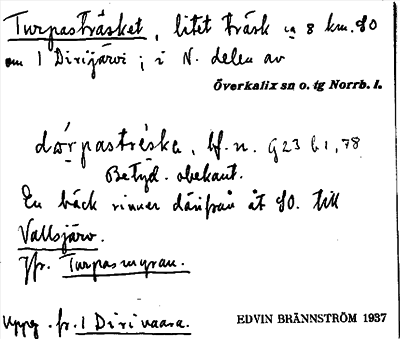 Turpasträsket, litet träsk ca 8 km. SO
om 1 Dirijärvi; i N. delen av
Överkalix sn o. tg Norrb. l.
dårpastréska, bf. n. G23 b1, 78
Betyd. obekant.
En bäck rinner därifrån åt SO. till
Vallsjärv.
Jfr. Turpasmyran.
Uppg. fr. 1 Dirivaara.
EDVIN BRÄNNSTRÖM 1937